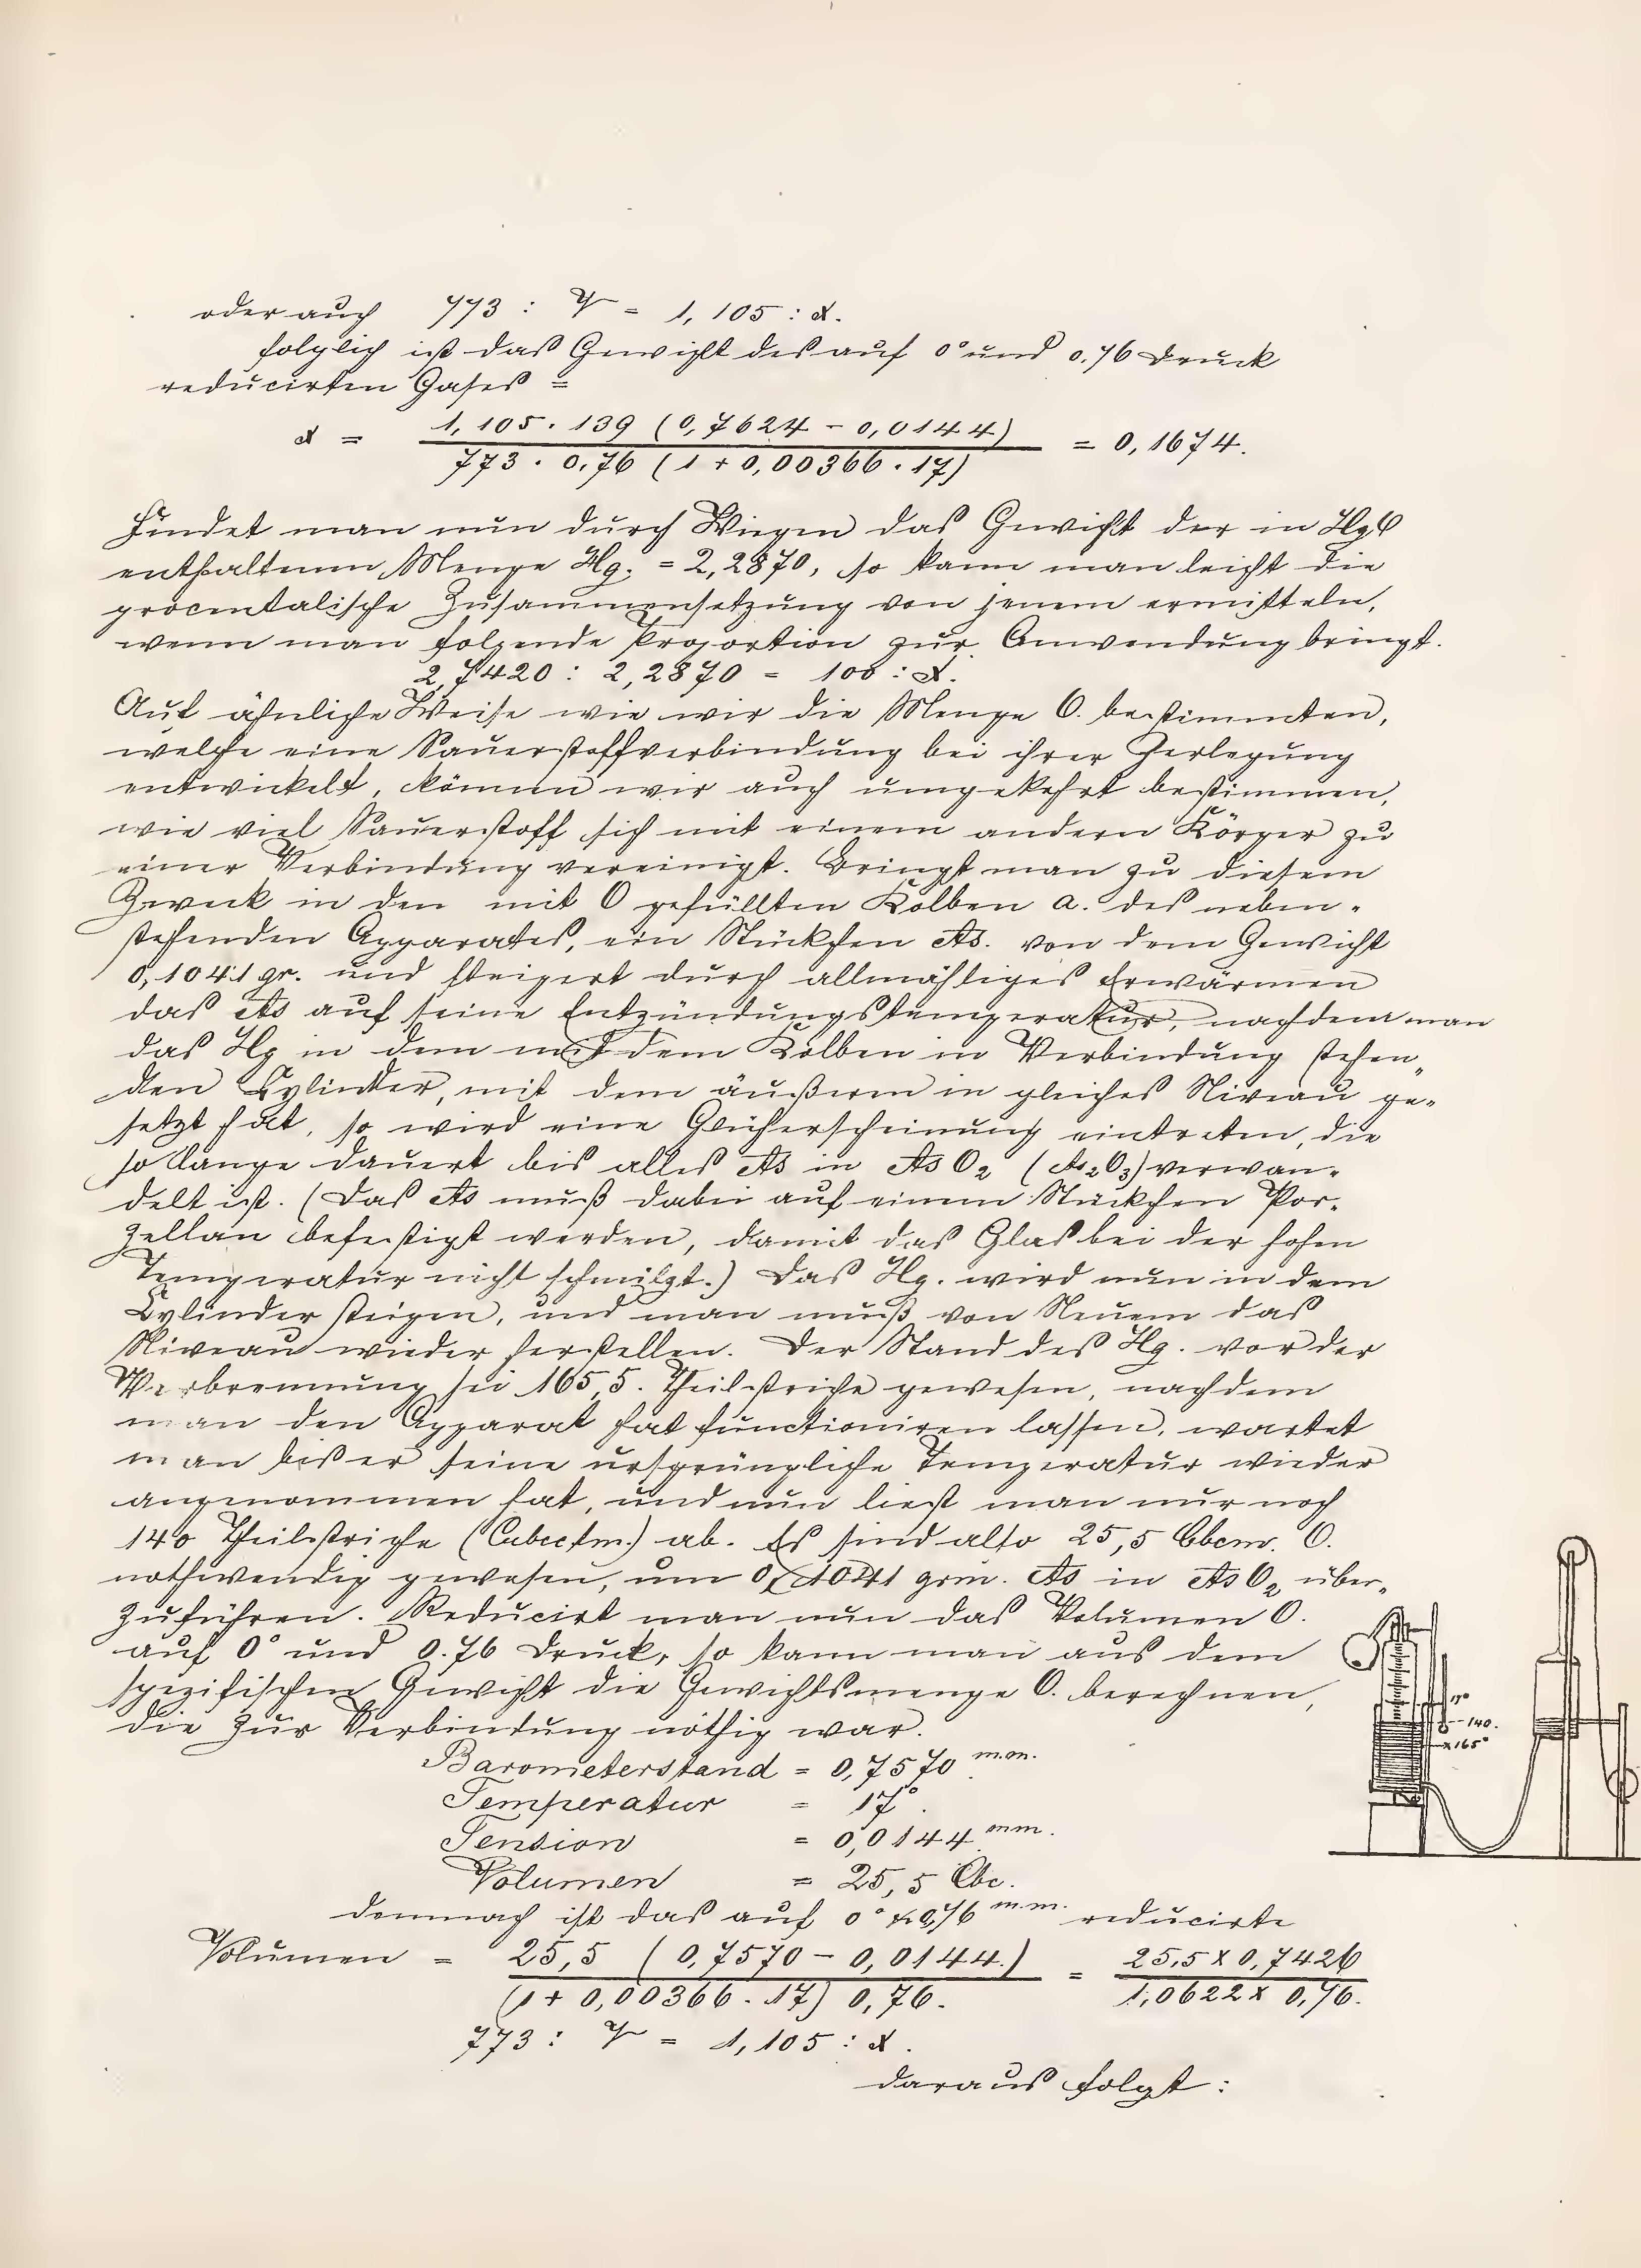 oder auch 773 : V = 1,105 : x.
folglich ist das Gewicht des auf 0° und 0.76 Druck
reducirten Gases =
x = 1,105 . 139 (0,7624 - 0,0144) / 773 . 0,76 (1 + 0,00366 . 17) = 0,1674.
Findet man nun durch Wiegen das Gewicht der in HgO
enthaltenen Menge Hg. = 2,2870, so kann man leicht die
procentalische Zusammensetzung von jenem ermitteln,
wenn man folgende Proportion zur Anwendung bringt.
2,7420 : 2,2870 = 100 : x.
Auf ähnliche Weise wie wir die Menge O. bestimmten,
welche eine Sauerstoffverbindung bei ihrer Zerlegung
entwickelt, können wir auch umgekehrt bestimmen,
wie viel Sauerstoff sich mit einem andern Körper zu
einer Verbindung vereinigt. Bringt man zu diesem
Zweck in den mit O gefüllten Kolben a. des neben-
stehenden Apparates, ein Stückchen As. von dem Gewicht
0,1041 gr. und steigert durch allmähliges Erwärmen
das As auf seine Entzündungstemperatur, nachdem man
das Hg in dem mit dem Kolben in Verbindung stehen-
den Cylinder, mit dem äußeren in gleiches Niveau ge-
setzt hat, so wird eine Glüherscheinung eintreten, die
so lange dauert bis alles As in AsO2 (As2O3) verwan-
delt ist. (Das As muß dabei auf einem Stückchen Por-
zellan befestigt werden, damit das Glas bei der hohen
Temperatur nicht schmilzt.) Das Hg. wird nun in dem
Cylinder steigen, und man muß von Neuem das
Niveau wieder herstellen. Der Stand des Hg. vor der
Verbrennung sei 165,5. Theilstriche gewesen, nachdem
man den Apparat hat functioniren lassen, wartet
man bis er seine ursprüngliche Temperatur wieder
angenommen hat, und nun liest man nur noch
140 Theilstriche (Cubcctm.) ab. Es sind also 25,5 Cbcm. O.
nothwendig gewesen, um 0,1041 grm. As in AsO2 über-
zuführen. Reducirt man nun das Volumen O.
auf 0° und 0.76 Druck, so kann man aus dem
spezifischen Gewicht die Gewichtsmenge O. berechnen,
die zur Verbindung nöthig war.
17°
140.
x 165°
Barometerstand = 0,7570 m.m.
Temperatur = 17°.
Tension = 0,0144 mm.
Volumen = 25,5 Cbc.
demnach ist das auf 0° & 0,76 m.m. reducirte
Volumen = 25,5 (0,7570 - 0,0144.) / (1 + 0,00366 . 17) 0,76. = 25,5 x 0,7426 / 1,0622 x 0,76.
773 : V = 1,105 : x.
daraus folgt :